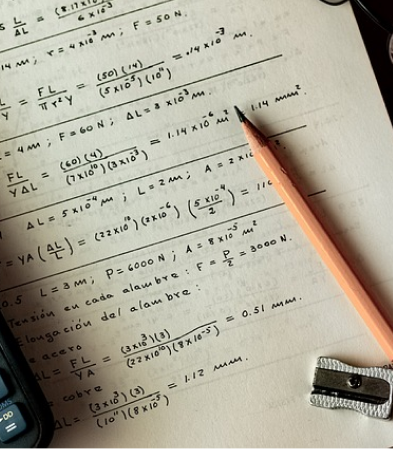 L/ΔL = (8.17x10
6x10⁻³
14 m ; r = 4x10⁻³ m ; F = 50 N.
L/Y = FL/πr²Y = (50)(14)/(5x10⁻⁵)(10¹¹) = .14 x10⁻³ m.
= 4 m ; F = 60 N ; ΔL = 3 x10⁻³ m.
FL/YΔL = (60)(4)/(7x10¹⁰)(3x10⁻³) = 1.14 x10⁻⁶ m² 1.14 mm².
ΔL = 5x10⁻⁴ m ; L = 2 m ; A = 2x10
= YA (ΔL/L) = (22x10¹⁰)(2x10⁻⁶) (5x10⁻⁴/2) = 11
0.5 L = 3 m ; P = 6000 N ; A = 8x10⁻⁵ m²
Tensión en cada alambre : F = P/2 = 3000 N.
Elongación del alambre :
acero
ΔL = FL/YA = (3x10³)(3)/(22x10¹⁰)(8x10⁻⁵) = 0.51 mm.
cobre
ΔL = (3x10³)(3)/(10¹¹)(8x10⁻⁵) = 1.12 mm.
=